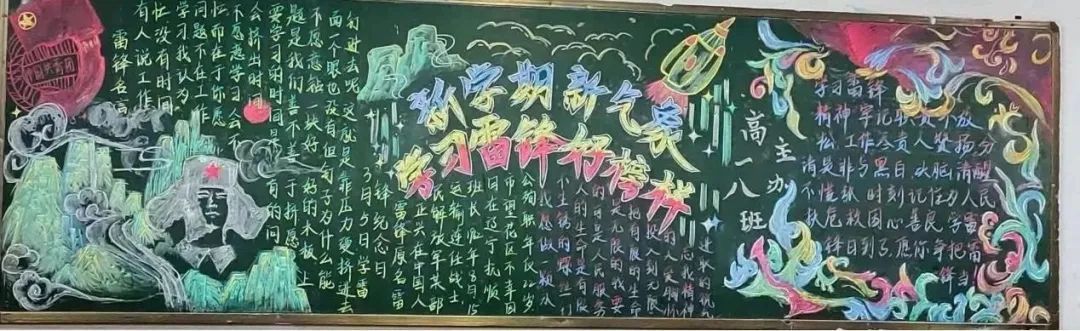 国共青团
雷锋名言
有人说工作
忙没有时间
学习我认为
问题不在工作
忙而在于你愿
不愿意学习会不
会挤出时间
要学习的时间是有的问
题是我们善不善于挤愿
不愿意钻一块好好的木板上
面一个眼也没有但钉子为什么能
钉进去呢这就是靠压力硬挤进去
3月5日学雷
锋纪念日
新学期新气象
学习雷锋好榜样
雷锋原名雷
正兴在中国人
民解放军某部
运输连任战士
班长 年8月15
日在辽宁抚顺
市望花区不幸因
公殉职年仅22岁
不生锈的螺丝钉
我愿做一颗永
人的生命是有限
的可是为人民服务
是无限的我要
把有限的生命
投入到无限
主办
高一八班
学习雷锋
精神牢记职责不放
松工作尽责人赞扬分
清是非与黑白头脑清醒
不慌 时刻记住为人民
扶危救困心善良学雷
锋日到了愿你争把雷
锋当